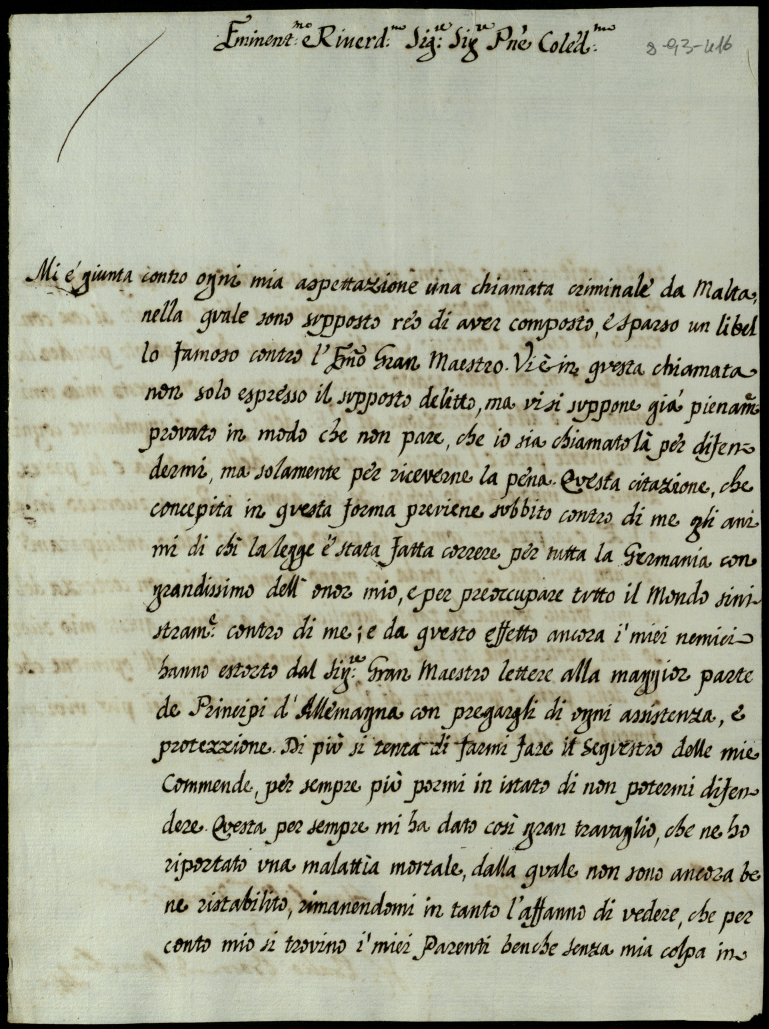 Eminent:mo e Riuerd:mo Sig:re Sig:re Pne Coled:mo
Mi é giunta contro ogni mia aspettazione una chiamata criminale da Malta,
nella quale sono supposto reo di aver composto, e sparso un libel
lo famoso contro l'Emo Gran Maestro. Vi è in questa chiamata
non solo espresso il supposto delitto, ma vi si suppone giá pienamte
provato in modo che non pare, che io sia chiamato là per difen-
dermi, ma solamente per riceverne la pena. Questa citazione, che
concepita in questa forma previene subbito contro di me gli ani
mi di chi la legge è stata fatta correre per tutta la Germania con
grandissimo dell'onor mio, e per preoccupare tutto il Mondo sini-
stramte. contro di me; e da questo effetto ancora i' miei nemici
hanno estorto dal Sig:re Gran Maestro lettere alla maggior parte
de Principi d'Allemagna con pregargli di ogni assistenza, e
protezzione. Di più si tenta di farmi fare il Sequestro delle mie
Commende, per sempre più pormi in istato di non potermi difen-
dere. Questa per sempre mi ha dato così gran travaglio, che ne ho
riportato una malattia mortale, dalla quale non sono ancora be
ne ristabilito, rimanendomi in tanto l'affanno di vedere, che per
conto mio si trovino i' miei Parenti benche senza mia colpa in